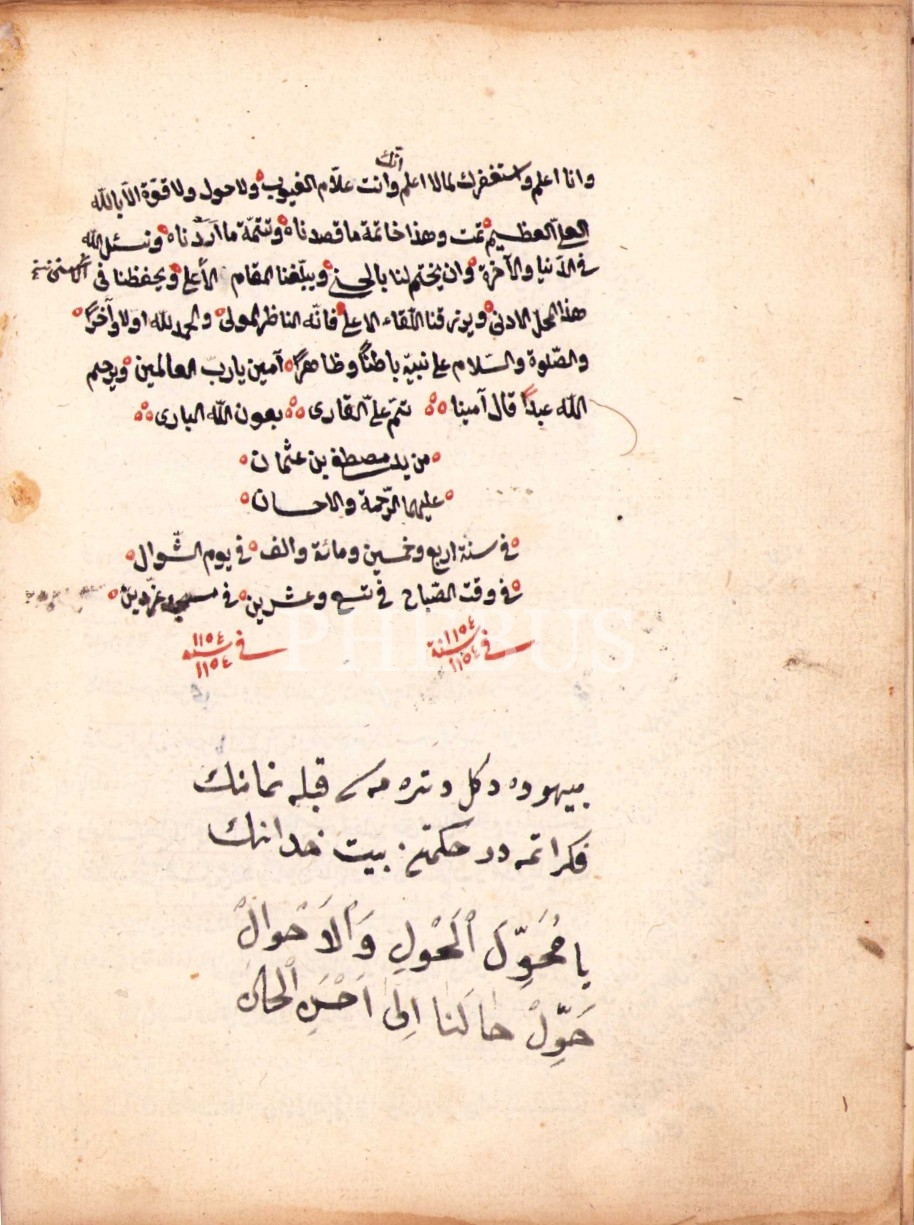 انك
وانا اعلم واستغفرك لما لا اعلم وانت علّام الغيوب ولا حول ولا قوّة الّا بالله
العلىّ العظيم تمت وهذا خاتمة ما قصدناه وتتمّة ما اردناه ونسئل الله
فى الدّنيا والآخرة وان يختم لنا بالحسنى ويبلّغنا المقام الأعلى ويحفظنا فى
هذا المحل الادنى ويرزقنا اللّقاء الاعلى فانّه الناظر المولى والحمد لله اولا وآخرًا
والصّلوة والسّلام على نبيّه باطنًا وظاهرًا آمين يا ربّ العالمين ويرحم
الله عبدًا قال آمينا تتم على القارى بعون الله البارى
من يد مصطفى بن عثمان
عليهما الرّحمة والاحسان
فى سنة اربع وخمسين ومائة والف فى يوم الشّوال
فى وقت الصّباح فى تسع وعشرين فى مسجد
فى سنة ١١٥٤ ١١٥٤
فى سنه ١١٥٤ ١١٥٤
PHEBUS
بيهوده دكل قبله نمانك
فكر ايتمه در حكمتى بيت خدانك
يا مُحَوِّلَ الْحَوْلِ وَالْاَحْوَالْ
حَوِّلْ حَالَنَا اِلىٰ اَحْسَنِ الْحَالْ